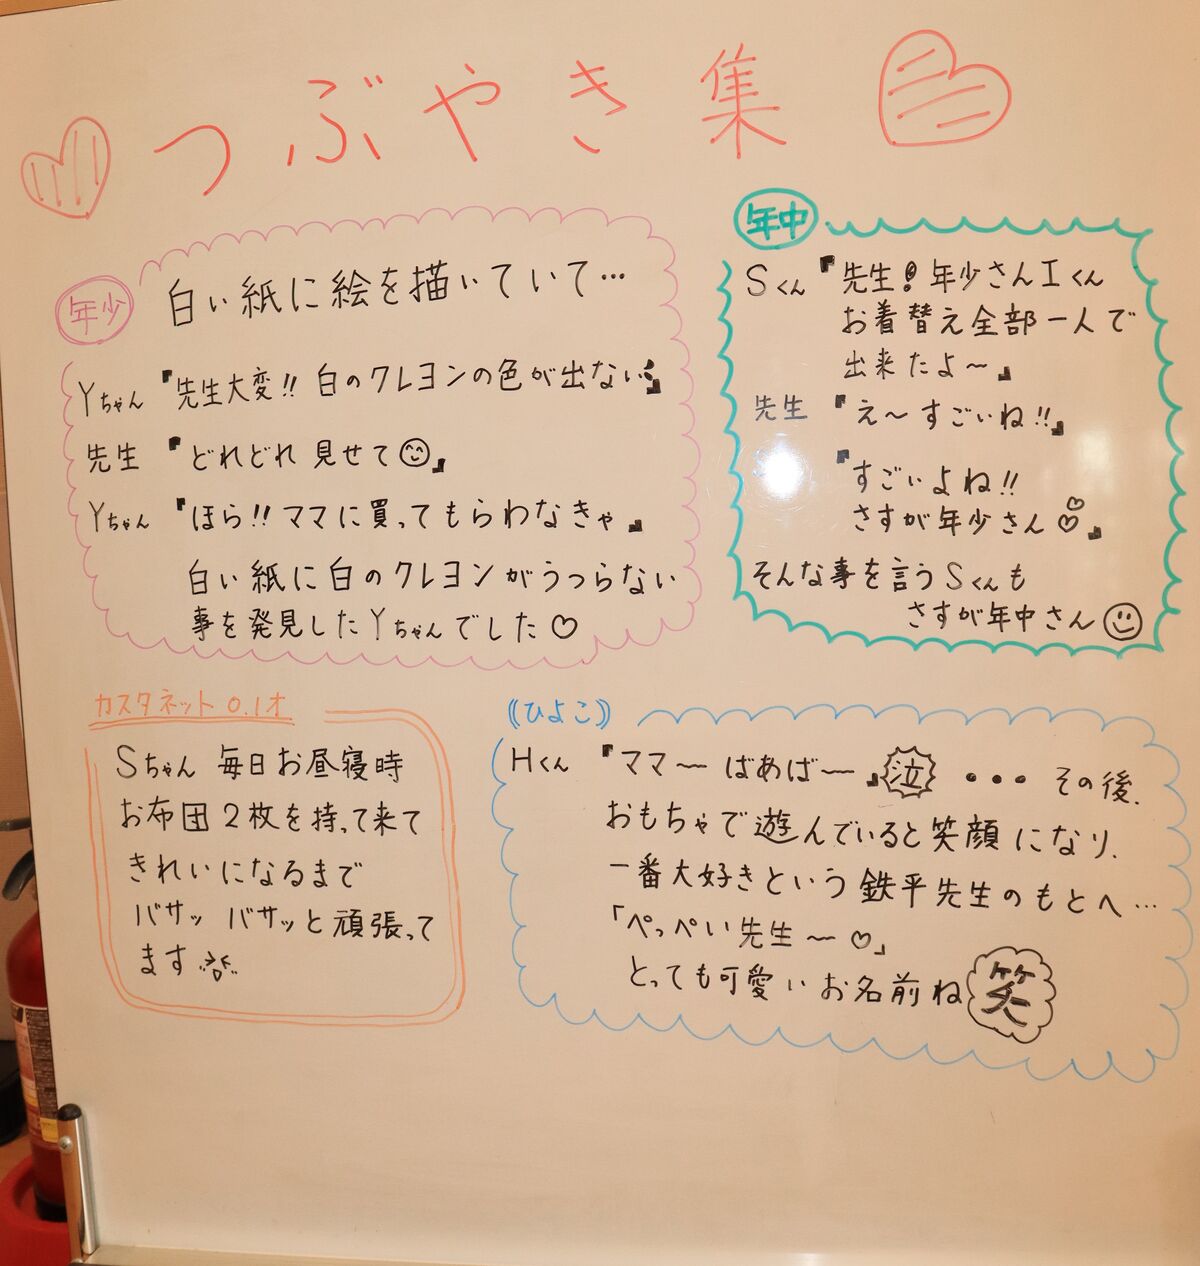 つぶやき集
年少
白い紙に絵を描いていて…
Yちゃん『先生大変!! 白のクレヨンの色が出ない』
先生『どれどれ 見せて』
Yちゃん『ほら!! ママに買ってもらわなきゃ』
白い紙に白のクレヨンがうつらない
事を発見したYちゃんでした♡
年中
Sくん『先生!年少さんIくん
お着替え全部一人で
出来たよ〜』
先生『え〜すごいね!!』
『すごいよね!!
さすが年少さん♡』
そんな事を言うSくんも
さすが年中さん
カスタネット 0.1才
Sちゃん 毎日お昼寝時
お布団2枚を持って来て
きれいになるまで
バサッ バサッと頑張って
ます
((ひよこ))
Hくん『ママ〜 ばあば〜』泣 ・・・ その後、
おもちゃで遊んでいると笑顔になり、
一番大好きという鉄平先生のもとへ…
「ぺっぺい先生〜♡」
とっても可愛いお名前ね 笑